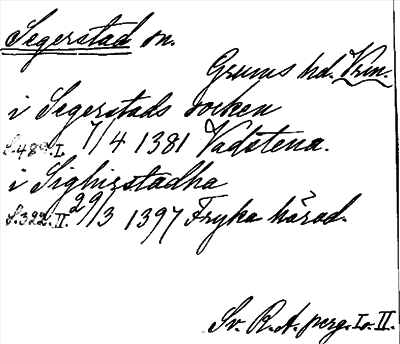 Segerstad sn.
Grums hd. Vrm.
i Segerstads socken
S.482.I. 7/4 1381 Vadstena.
i Sighirstadha
S.322.II. 29/3 1397 Fryka härad.
Sv. R.A. perg. I o. II.